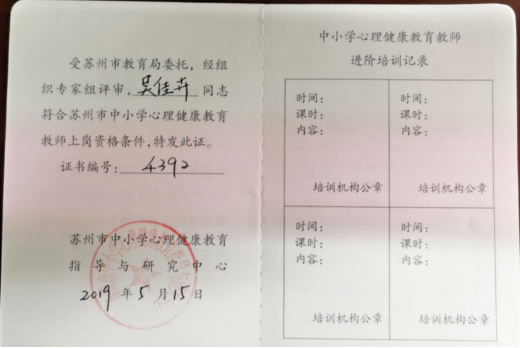 受苏州市教育局委托，经组
织专家组评审，吴佳卉 同志
符合苏州市中小学心理健康教育
教师上岗资格条件，特发此证。
证书编号：4392
苏州市中小学心理健康教育
指导与研究中心
2019 年 5 月 15 日
中小学心理健康教育教师
进阶培训记录
时间：
课时：
内容：
培训机构公章
时间：
课时：
内容：
培训机构公章
时间：
课时：
内容：
培训机构公章
时间：
课时：
内容：
培训机构公章